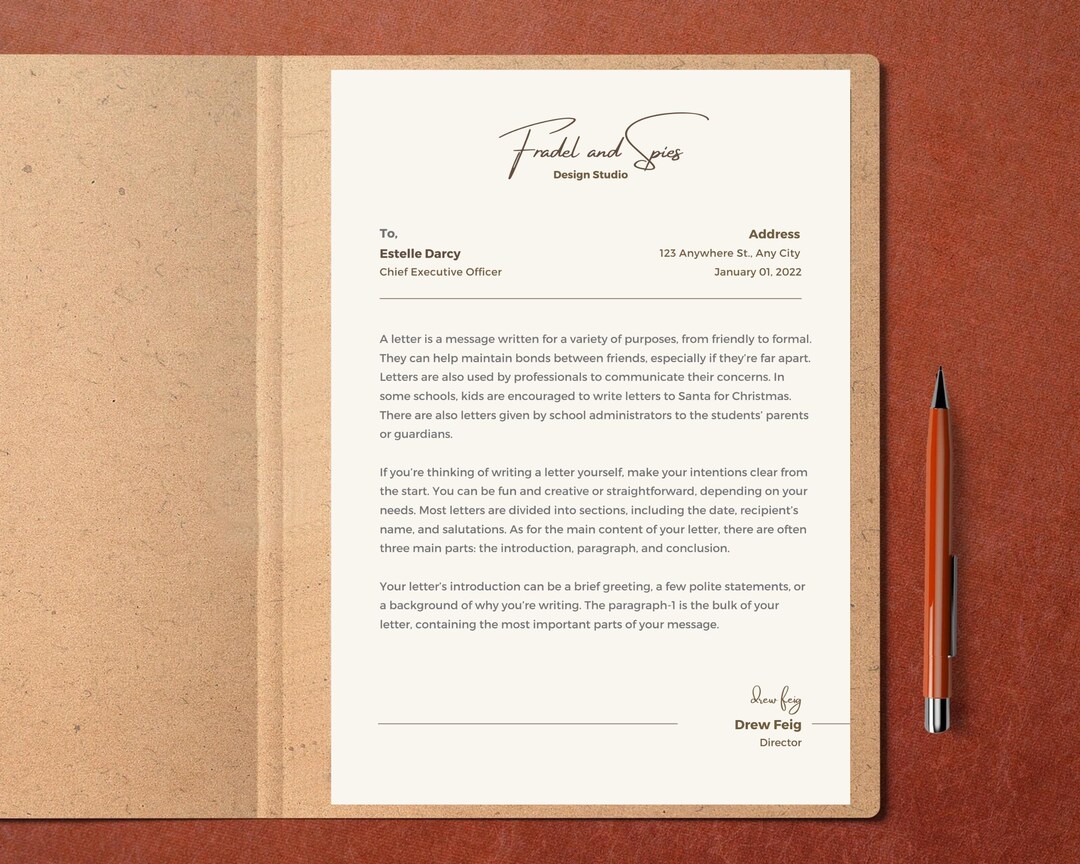 Fradel and Spies
Design Studio
To,
Estelle Darcy
Chief Executive Officer
Address
123 Anywhere St., Any City
January 01, 2022
A letter is a message written for a variety of purposes, from friendly to formal.
They can help maintain bonds between friends, especially if they're far apart.
Letters are also used by professionals to communicate their concerns. In
some schools, kids are encouraged to write letters to Santa for Christmas.
There are also letters given by school administrators to the students' parents
or guardians.
If you're thinking of writing a letter yourself, make your intentions clear from
the start. You can be fun and creative or straightforward, depending on your
needs. Most letters are divided into sections, including the date, recipient's
name, and salutations. As for the main content of your letter, there are often
three main parts: the introduction, paragraph, and conclusion.
Your letter's introduction can be a brief greeting, a few polite statements, or
a background of why you're writing. The paragraph-1 is the bulk of your
letter, containing the most important parts of your message.
drew feig
Drew Feig
Director